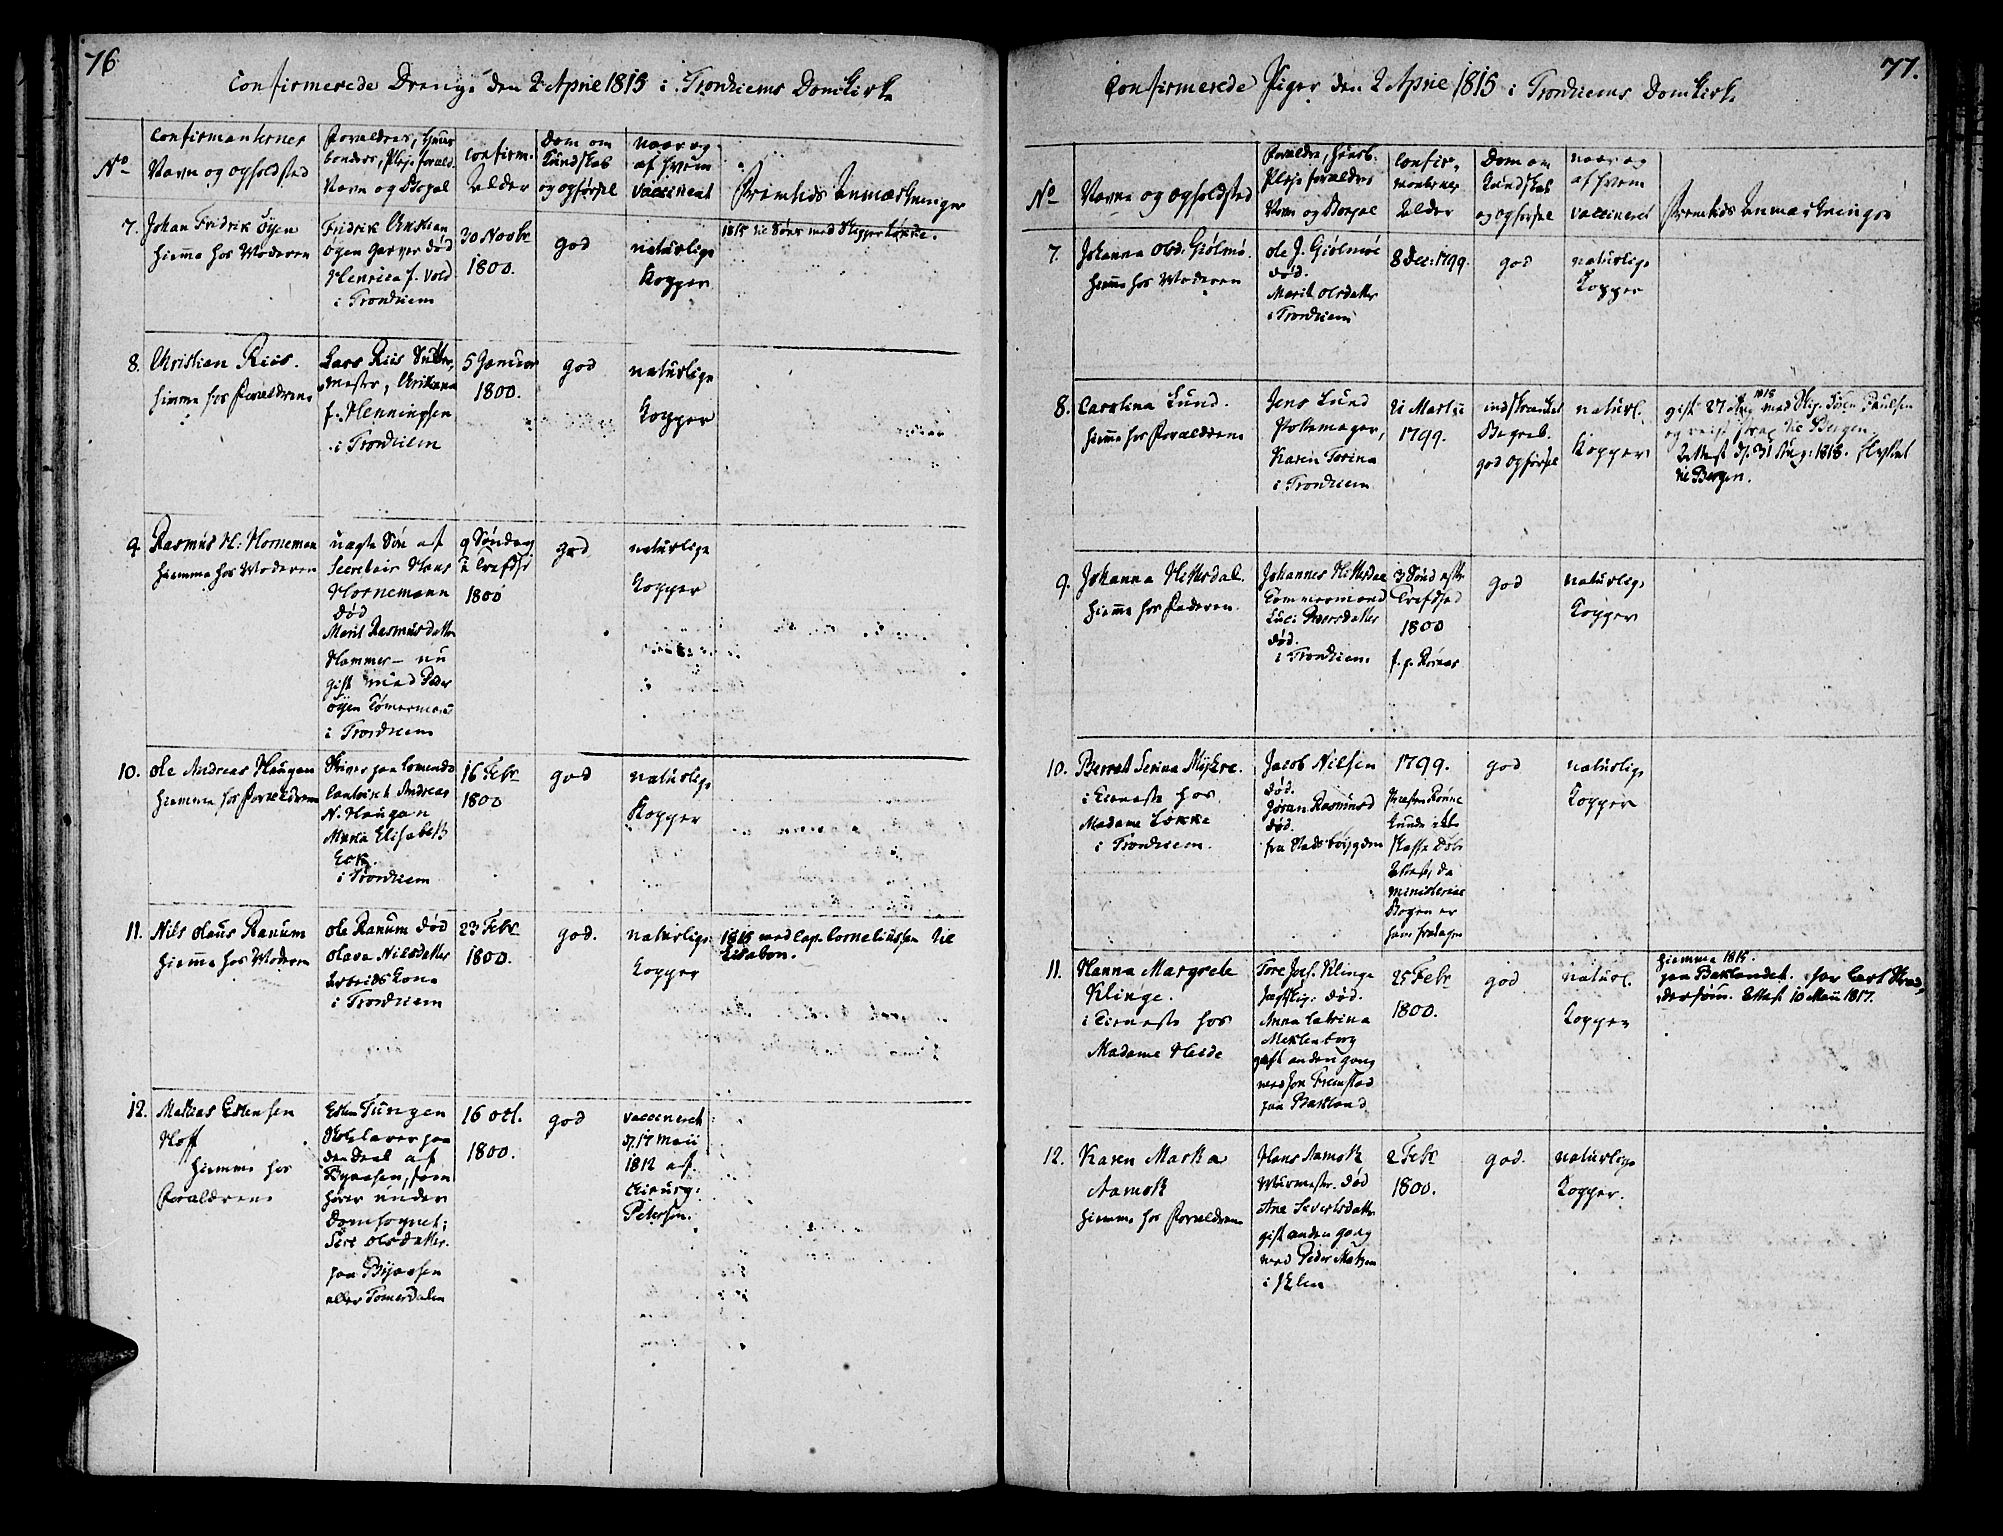 76
Confirmerede Drenge den 2 April 1815 i Trondhiems DomKirke
No
Confirmanternes
Navn og opholdsted
Foreldres, Huus
bonders, Pleje foreld.
Navn og Bopæl
Confirm.
Alder
Dom om
Kundskab
og opførsel
Naar og
af hvem
vaccineret
Fremtids Anmærkninger
7.
Johan Fridrik Öyen
hiemme hos Moderen
Fridrik Christian
Öyen Garver død
Henrica f. Vold
i Trondhiem
30 Novbr
1800.
god
naturlige
Kopper
1815 til Søes med Skipper Løkke.
8.
Christian Riis.
hiemme hos Forældrene
Lars Riis
mester, Christiana
f. Henningsen
i Trondhiem
5 Januar
1800.
god
naturlige
Kopper
9.
Rasmus H: Horneman
hiemme hos Moderen
uægte Søn af
Secretair Hans
Hornemann
død
Marit Rasmusdatter
Hammer - nu
gift med Peder
Öyen Tömermand
i Trondhiem
9 Søndag
e Trefdh
1800
god
naturlige
Kopper
10.
Ole Andreas Haugan
hiemme hos Forældrene
Skriver paa Comendo
Contoiret Andreas
N. Haugan
Maria Elisabeth
Eck.
i Trondhiem
16 Febr
1800
god
naturlige
Kopper
11.
Nils Olaus Ranum
hiemme hos Moderen
Ole Ranum død
Olava Nilsdatter
Arbeids Kone
i Trondhiem
23 Febr
1800.
god.
naturlige
Kopper
1815 med Cap. Corneliussen til
Lisabon.
12.
Mathias Estensen
Hoff
hiemme hos
Forældrene
Esten Tungen
paa
den Deel af
Byaasen, som
hører under
Domsognet;
Siri Olsdatter
paa Byaasen
eller Tomerdalen
16 Oct.
1800.
god
vaccineret
d. 17 Maii
1812 af
Chirurg:
Petersen.
77.
Confirmerede Piger den 2 April 1815 i Trondhiems DomKirke
No
Navne og Opholdsted
Forældre, Huusb.
Pleje forældres
Navn og Bopæl
Confir-
manternes
Alder
Dom om
Kundskab
og opførsel
naar og
af hvem
vaccineret
Fremtids Anmærkninger
7.
Johanna Olsd. Giølmø.
hiemme hos Moderen
Ole J. Giølmøe
død.
Marit Olsdatter
i Trondhiem
8 Dec: 1799.
god
naturlige
Kopper
8.
Carolina Lund.
hiemme hos Forældrene
Jens Lund
Pottemager,
Karen Torina
i Trondhiem
21 Martii
1799.
indskrænket
Begreb.
god Opførsel
naturl.
Kopper
gift 27 Aug 1818 med Skip. Paulsen
og reist strax til Bergen.
Attest d. 31 Aug: 1818. flyttet
til Bergen.
9.
Johanna Hittesdal.
hiemme hos Faderen.
Johannes Hittesdal
Tömmermand
Luci: Pedersdatter
død.
i Trondhiem
3 Sønd efter
Trefdhed
1800
f. p. Røraas
god
naturlige
Kopper
10.
Berret Serina Myhre.
i Tieneste hos
Madame Løkke
i Trondhiem.
Jacob Nilsen
død.
Jøran Rasmusd
død.
fra Stadsbøigden
1799.
Præsten Rønne
kunde ikke
skaffe Døbe
Attest, da
ministerial
Bogen er
ham fratagen
god
naturlige
Kopper
11.
Hanna Margrete
Klinge.
i Tieneste hos
Madame Heide
Tore Joh. Klinge
Jægtskip: død.
Anna Catrina
Meklenborg
gift anden gang
med Jon Fremstad
paa Bakland
25 Febr
1800.
god
naturl.
Kopper
hiemme 1815.
paa Baklandet.
Attest 10 Maii 1817.
12.
Karen Marka
Aamok
hiemme hos Forældrene
Hans Aamok
Muurmestr. død
Ane Sivertsdatter
gift anden gang
med Peder Matzen
i Ihlen
2 Febr
1800.
god.
naturlige
Kopper.